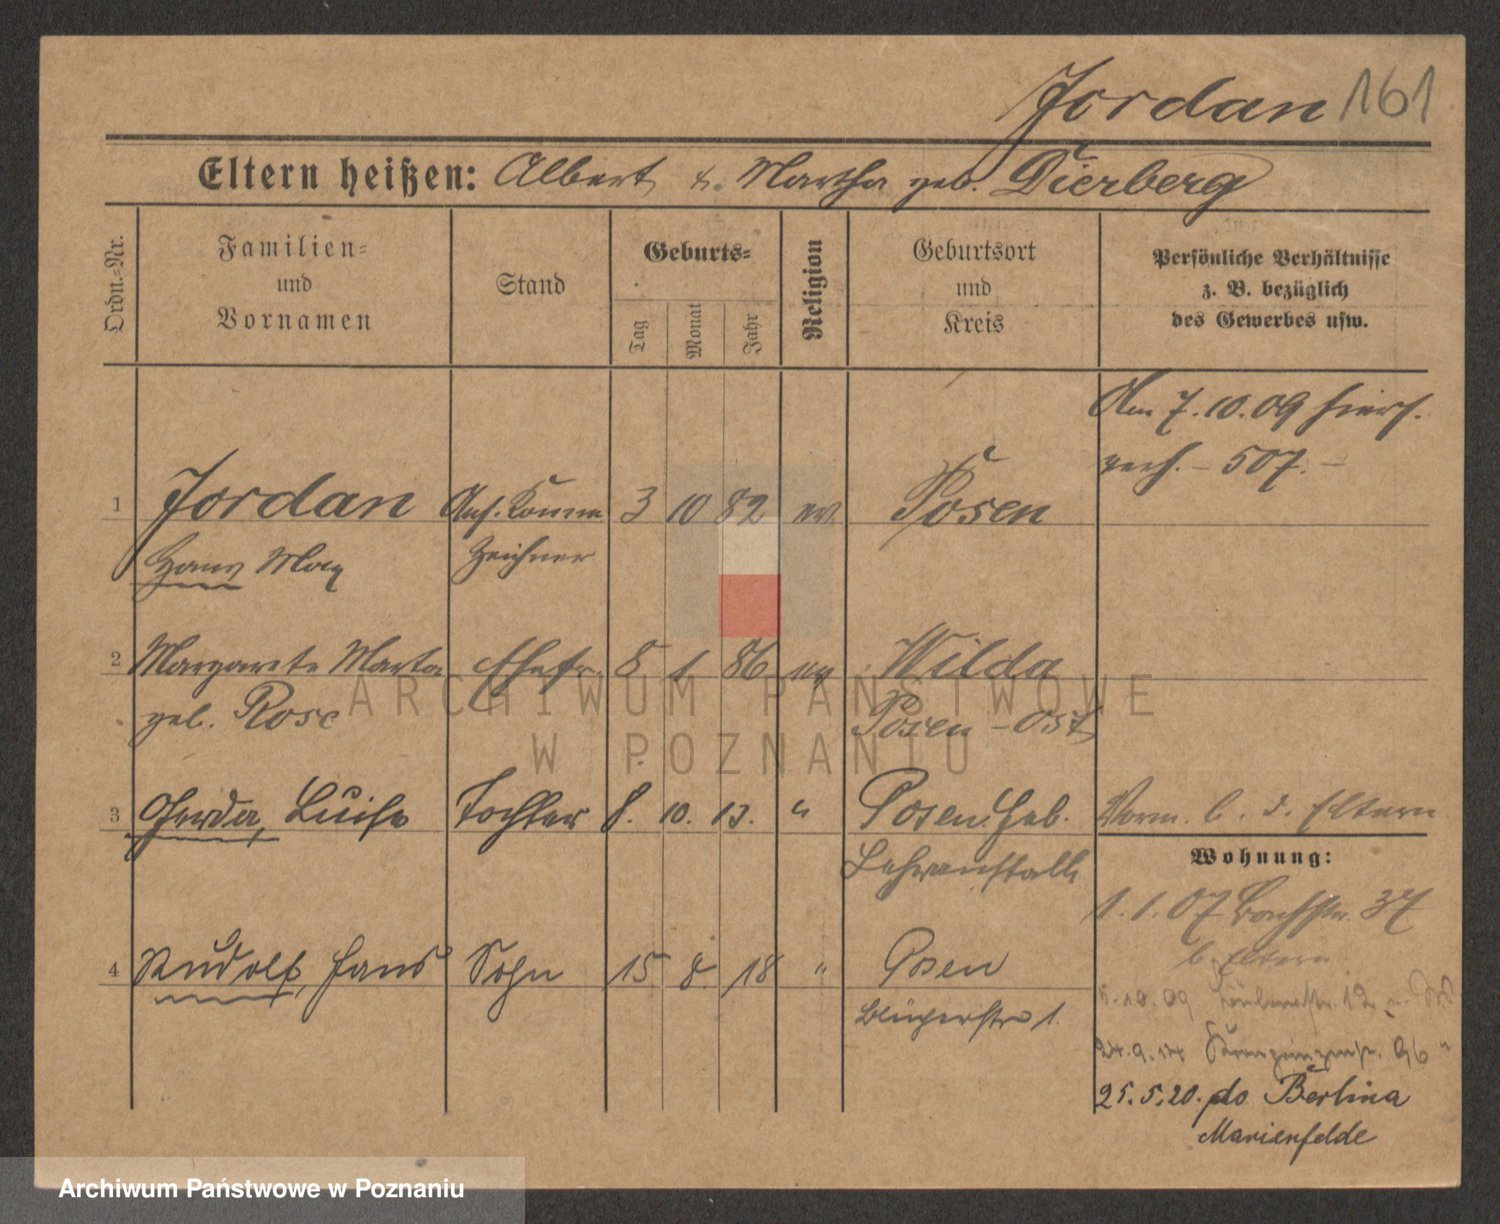 Jordan 161
Eltern heißen: Albert u. Martha geb. Dierberg
Ordn.=Nr.
Familien=
und
Vornamen
Stand
Geburts=
Tag
Monat
Jahr
Religion
Geburtsort
und
Kreis
Persönliche Verhältnisse
z. B. bezüglich
des Gewerbes usw.
Am 7.10.09 hiers.
verh. – 507. –
1 Jordan 3 10 82 ev. Posen
Hans Max Zeichner
2 Margarete Marta Ehefr. 8 1 86 ev Wilda
geb. Rose Posen-Ost
3 Gerda, Luise Tochter 8. 10. 13. " Posen. Heb.
Lehranstalt
Vorm. b. d. Eltern
Wohnung:
1.1.07 Bachstr. 37
b. Eltern
4 Rudolf, Hans Sohn 15 8 18 " Posen
1.
5.10.09
24.9.14 96 "
25.5.20. do Berlina
Marienfelde
ARCHIWUM PAŃSTWOWE
W POZNANIU
Archiwum Państwowe w Poznaniu